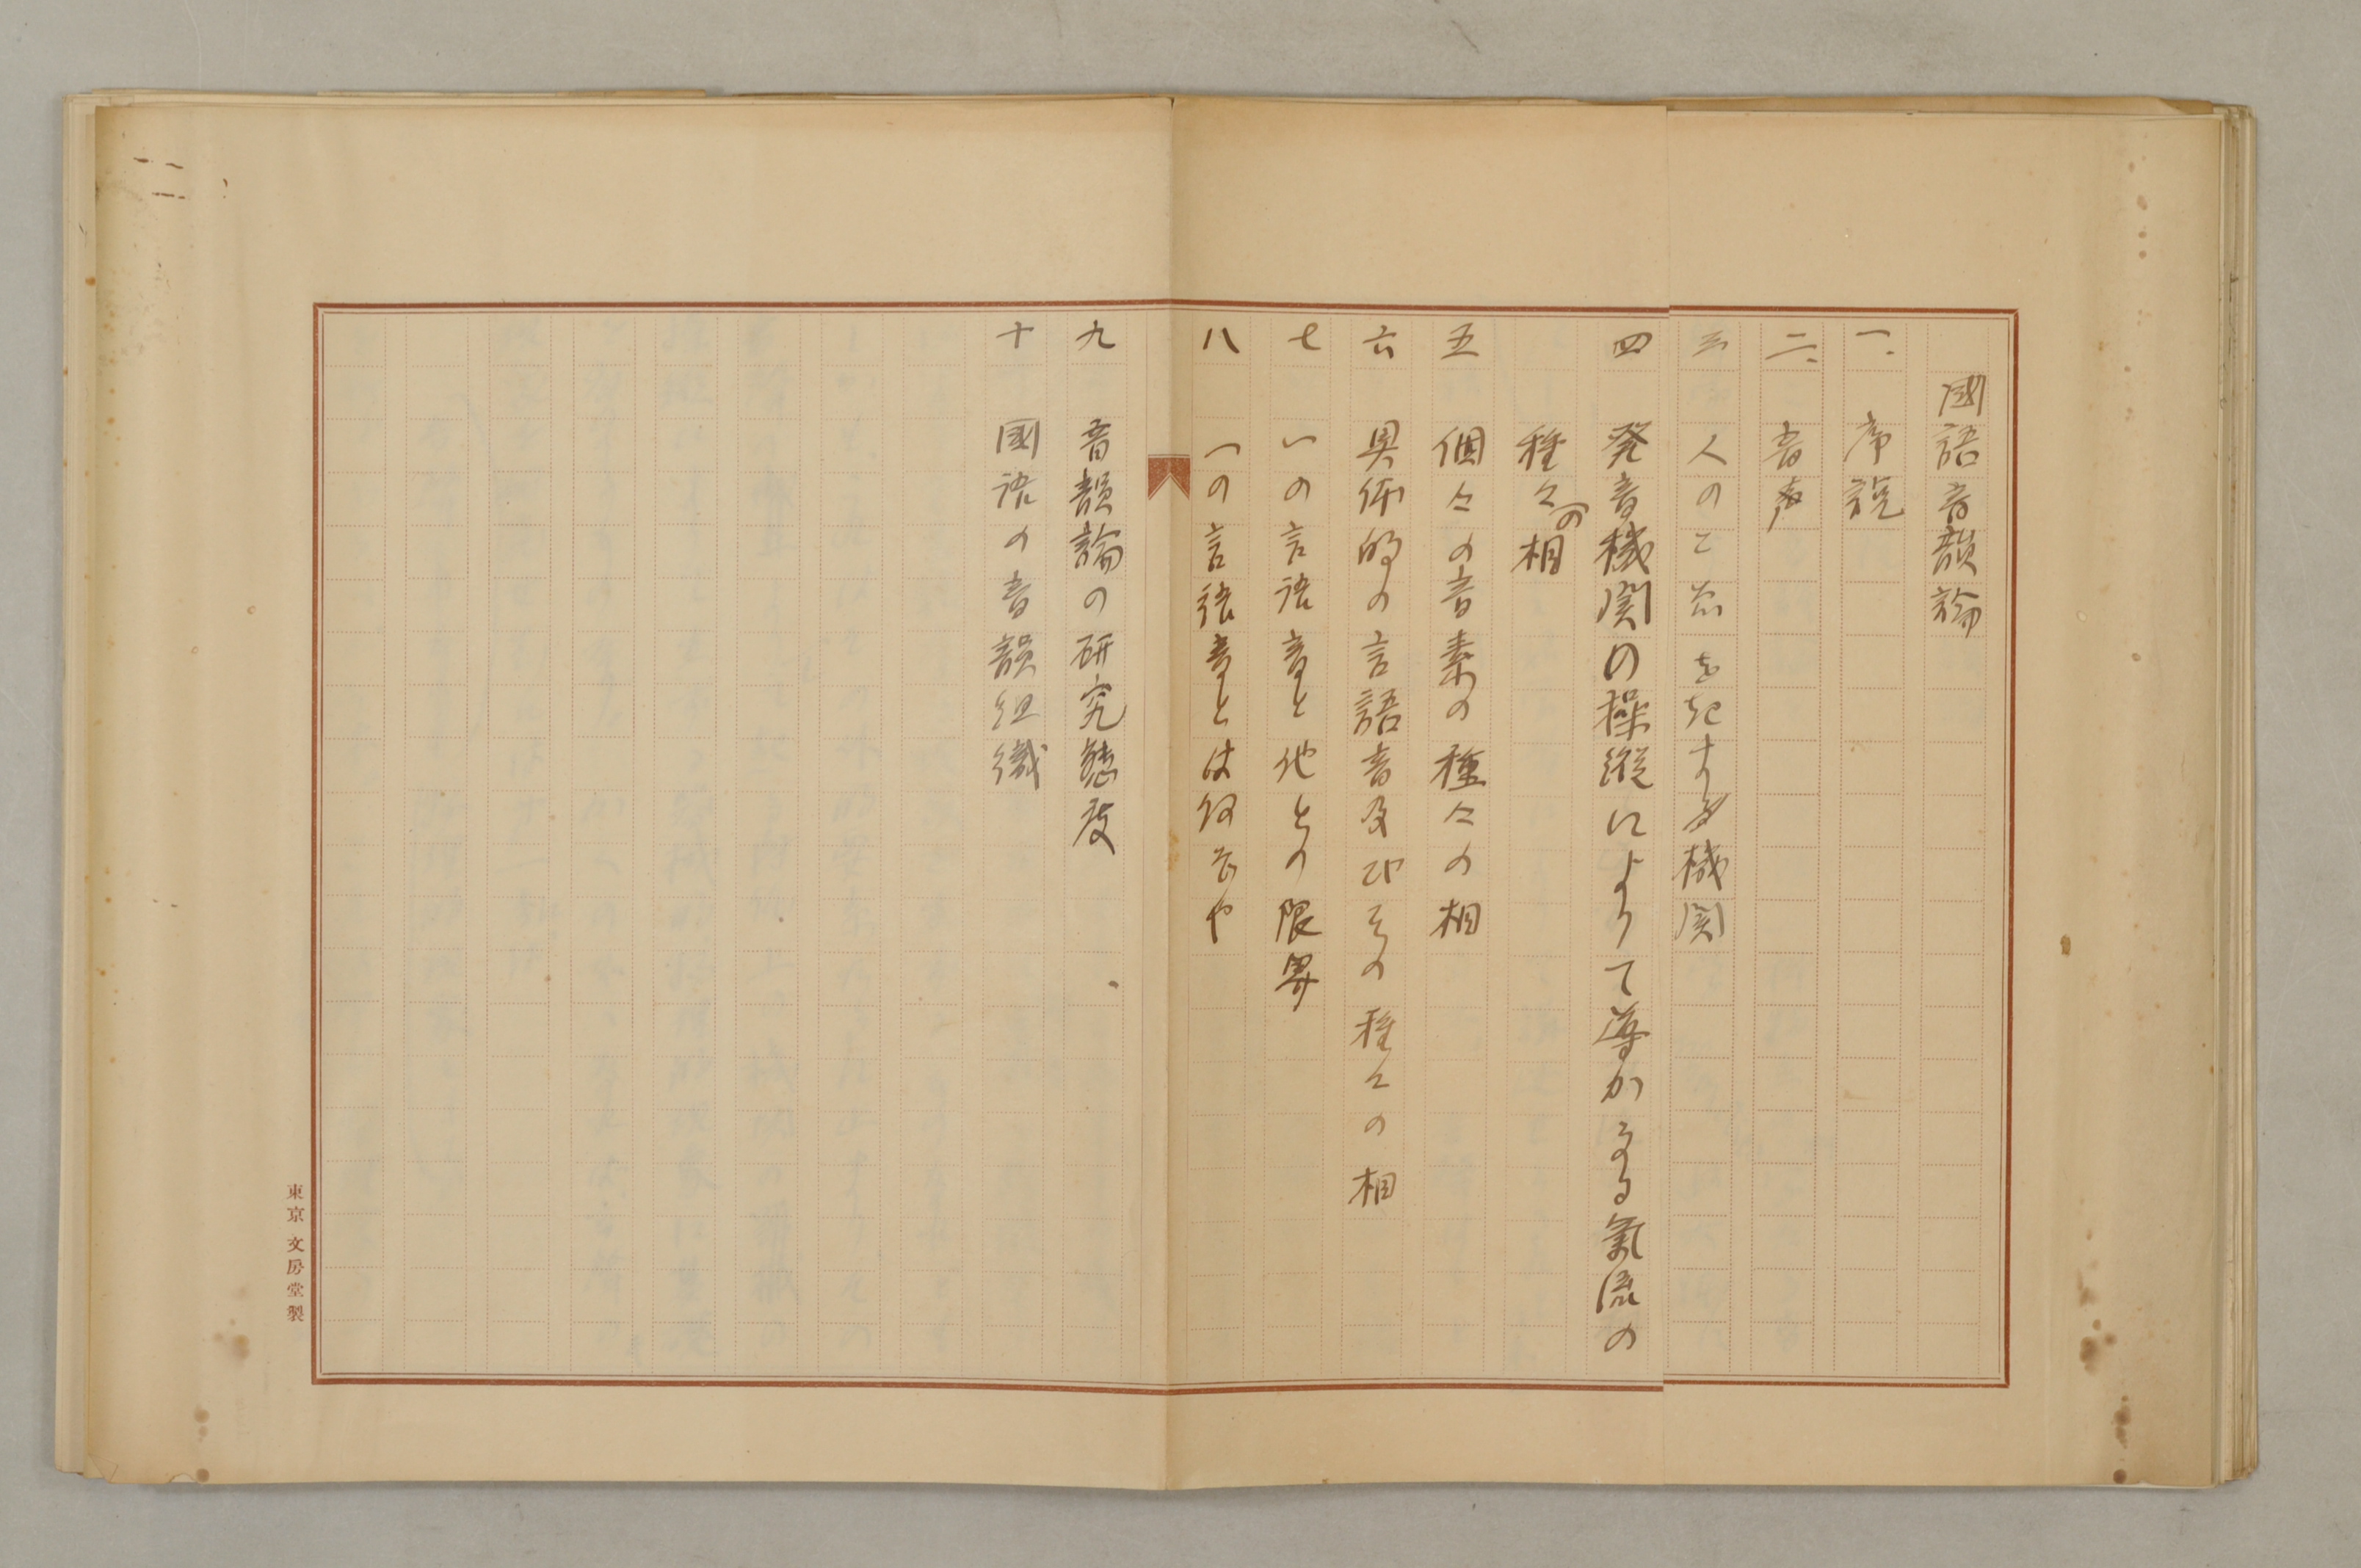 國語音韻論
一、序説
二、音声
三 人のこゑを起す機関
四 発音機関の操縦によりて導かるる氣流の
種々の相
五 個々の音素の種々の相
六 具体的の言語音及びその種々の相
七 一の言語音と他との限界
八 一の言語音とは何ぞや
九 音韻論の研究態度
十 國語の音韻組織
東京 文房堂製